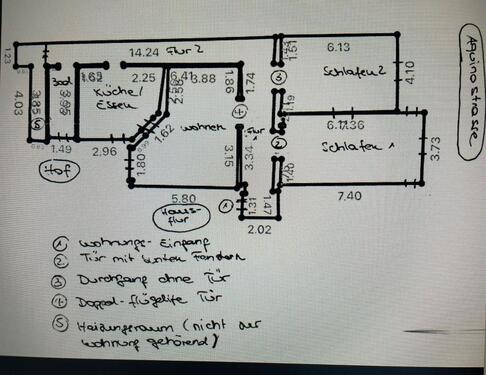 14.24 Flur 2
1.23
1.51
6.13
Schlafen 2
4.10
Aquinostrasse
Bad
2.25
6.41
3.88
1.86
1.74
Küche/
Essen
4.03
3.85
2.58
③
1.19
wohnen
④
Flur
1.62
Schlafen 1
3.73
②
1.49
2.96
1.80
3.15
3.34
Hof
1.40
7.40
5.80
Haus-
flur
①
1.31
1.47
2.02
① Wohnungs-Eingang
② Tür mit bunten Fenstern
③ Durchgang ohne Tür
④ Doppel-flügelige Tür
⑤ Heizungsraum (nicht zur
Wohnung gehörend)